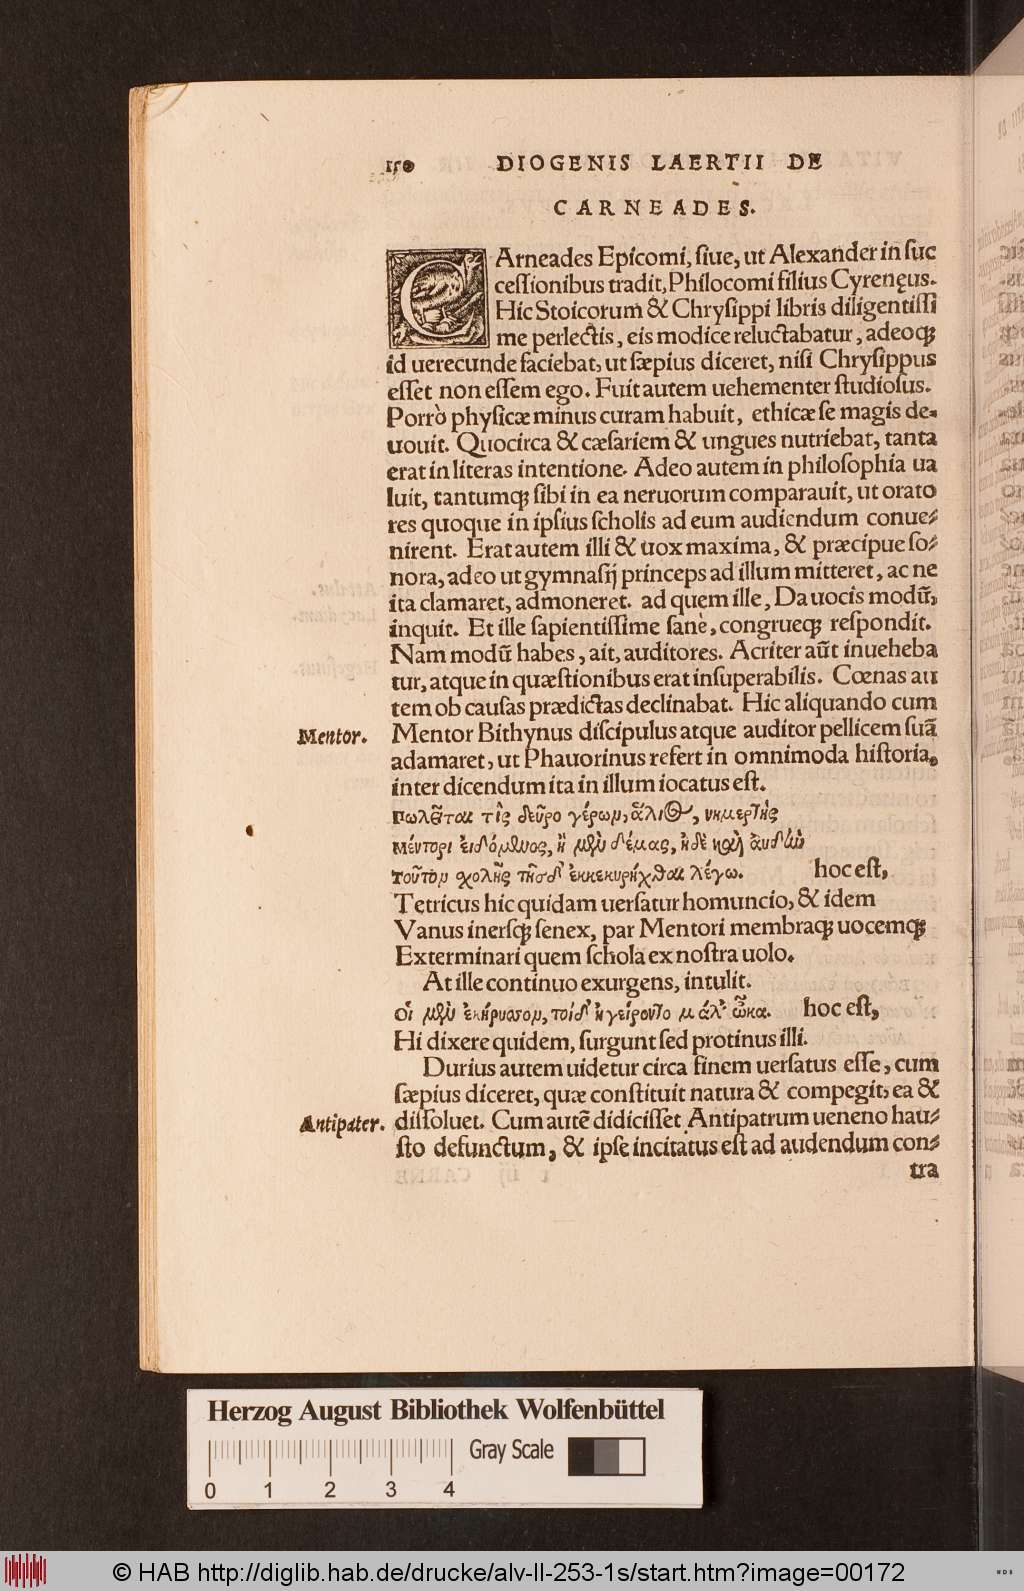 150 DIOGENIS LAERTII DE
CARNEADES.
CArneades Epicomi, siue, ut Alexander in suc
cessionibus tradit, Philocomi filius Cyrenęus.
Hic Stoicorum & Chrysippi libris diligentissi
me perlectis, eis modice reluctabatur, adeoq;
id uerecunde faciebat, ut sæpius diceret, nisi Chrysippus
esset non essem ego. Fuit autem uehementer studiosus.
Porrò physicæ minus curam habuit, ethicæ se magis de-
uouit. Quocirca & cæsariem & ungues nutriebat, tanta
erat in literas intentione. Adeo autem in philosophia ua
luit, tantumq; sibi in ea neruorum comparauit, ut orato
res quoque in ipsius scholis ad eum audiendum conue-
nirent. Erat autem illi & uox maxima, & præcipue so-
nora, adeo ut gymnasij princeps ad illum mitteret, ac ne
ita clamaret, admoneret. ad quem ille, Da uocis modũ,
inquit. Et ille sapientissime sanè, congrueq; respondit.
Nam modũ habes, ait, auditores. Acriter aũt inueheba
tur, atque in quæstionibus erat insuperabilis. Cœnas au
tem ob causas prædictas declinabat. Hic aliquando cum
Mentor. Mentor Bithynus discipulus atque auditor pellicem suã
adamaret, ut Phauorinus refert in omnimoda historia,
inter dicendum ita in illum iocatus est.
πωλεῖται τὶς δεῦρο γέρωμ, ἅλιος, νημερτὴς
Μέντορι εἰδόμενος, ἢ μὲν δέμας, ἠδὲ καὶ ἀυδὼ
τοῦτομ σχολῆς τῆσδ' ἐκκεκυρήχθαι λέγω. hoc est,
Tetricus hic quidam uersatur homuncio, & idem
Vanus inersq; senex, par Mentori membraq; uocemq;
Exterminari quem schola ex nostra uolo.
At ille continuo exurgens, intulit.
Οἱ μὲν ἐκήρυσσομ, τοὶ δ' ἠγείροντο μάλ' ὦκα. hoc est,
Hi dixere quidem, surgunt sed protinus illi.
Durius autem uidetur circa finem uersatus esse, cum
sæpius diceret, quæ constituit natura & compegit, ea &
Antipater. dissoluet. Cum autẽ didicisset Antipatrum ueneno hau-
sto defunctum, & ipse incitatus est ad audendum con-
tra
Herzog August Bibliothek Wolfenbüttel
Gray Scale
0 1 2 3 4
© HAB http://diglib.hab.de/drucke/alv-ll-253-1s/start.htm?image=00172